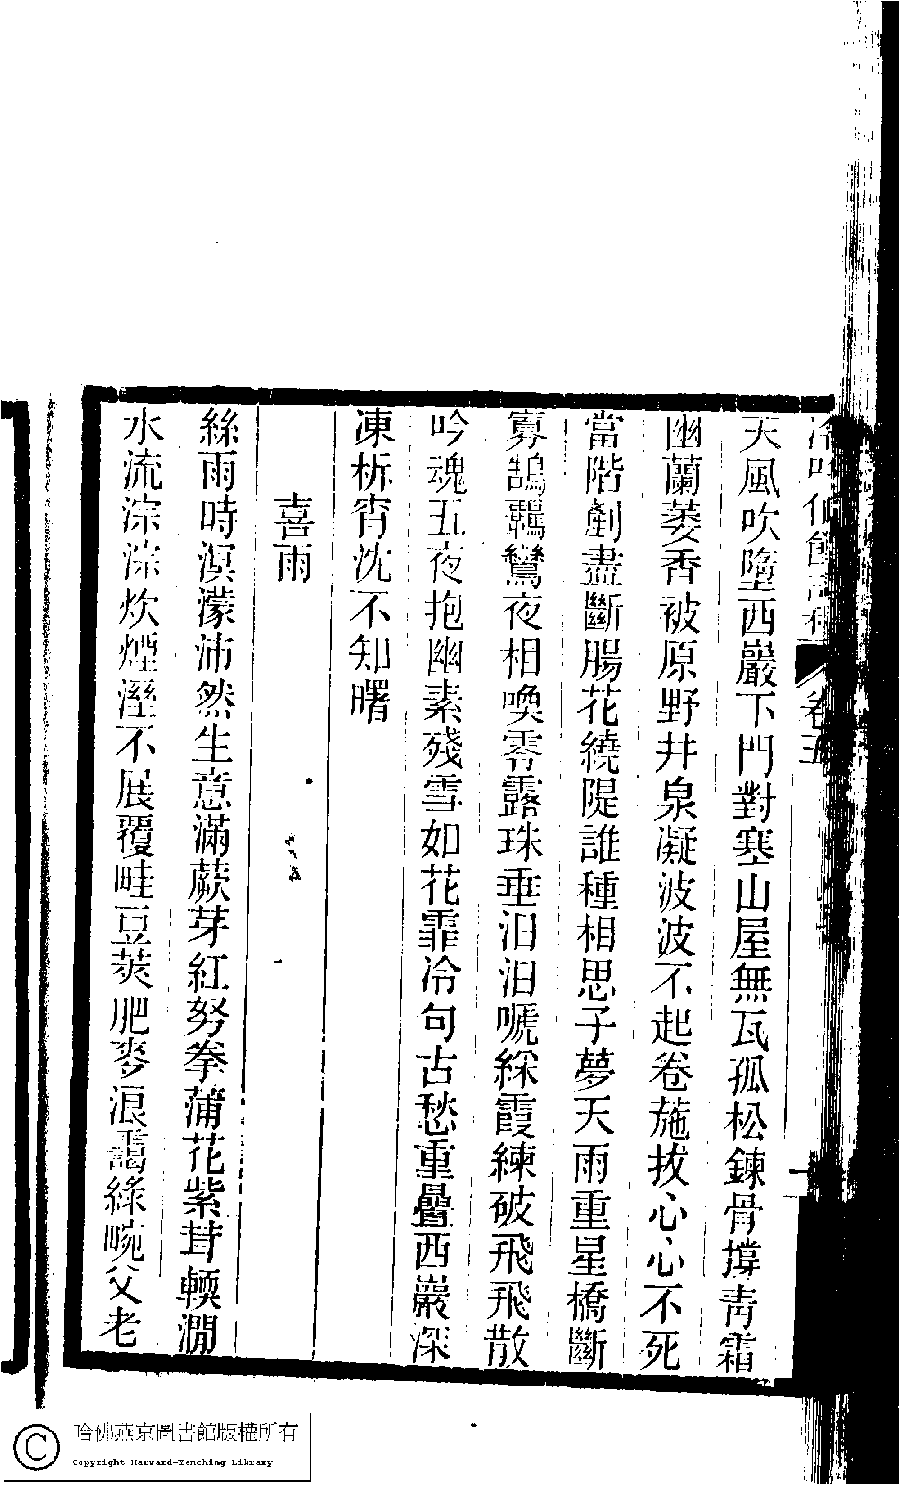 冷吟仙館詩稿 卷五
天風吹墮西巖下門對塞山屋無瓦孤松鍊骨撐青霜
幽蘭萎香被原野井泉凝波波不起卷葹拔心心不死
當階剷盡斷腸花繞隄誰種相思子夢天雨重星橋斷
寡鵠羈鸞夜相喚零露珠垂汨汨嗁綵霞練破飛飛散
吟魂五夜抱幽素殘雪如花霏冷句古愁重疊西巖深
凍柝宵沈不知曙
喜雨
絲雨時溟濛沛然生意滿蕨芽紅努拳蒲花紫茸輭澗
水流淙淙炊煙溼不展覆畦豆莢肥麥浪靄綠畹父老
哈佛燕京圖書館版權所有
Copyright Harvard-Yenching Library